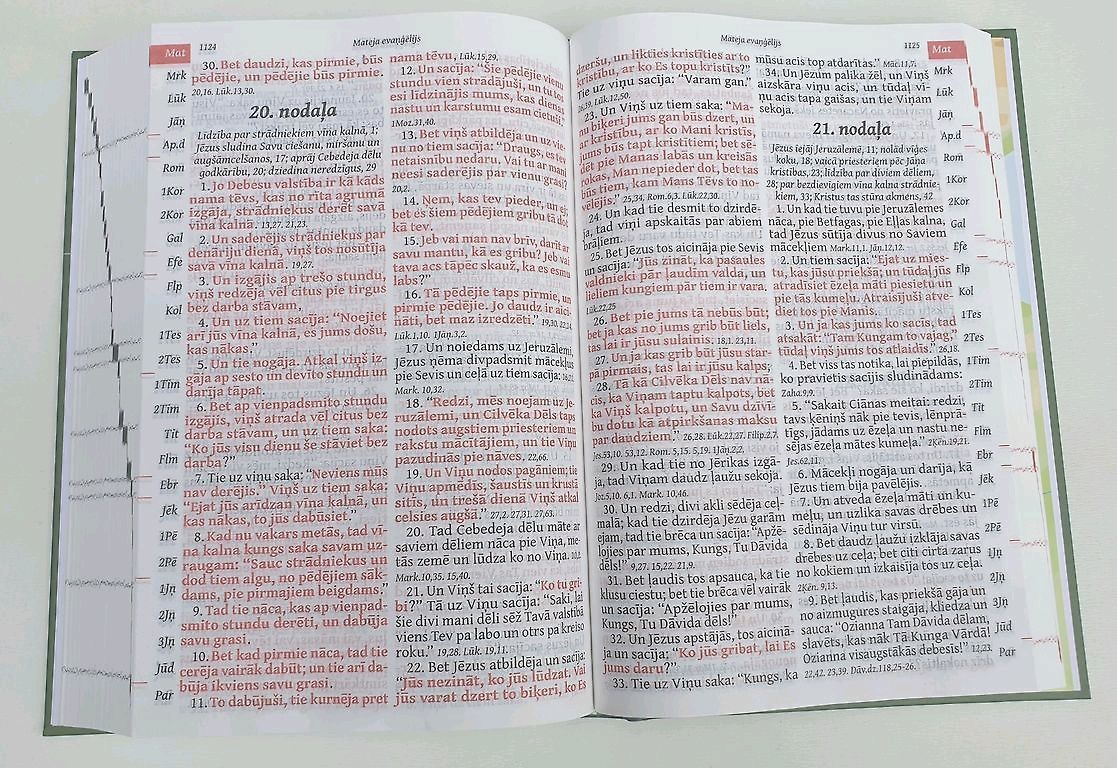 1124
Mateja evaņģēlijs
Mat
Mrk
Lūk
Jāņ
Ap.d
Rom
1Kor
2Kor
Gal
Efe
Flp
Kol
1Tes
2Tes
1Tim
2Tim
Tit
Flm
Ebr
Jēk
1Pē
2Pē
1Jņ
2Jņ
3Jņ
Jūd
Par
30. Bet daudzi, kas pirmie, būs
pēdējie, un pēdējie būs pirmie.
20,16. Lūk.13,30.
20. nodaļa
Līdzība par strādniekiem vīna kalnā, 1;
Jēzus sludina Savu ciešanu, miršanu un
augšāmcelšanos, 17; aprāj Cebedeja dēlu
godkārību, 20; dziedina neredzīgus, 29
1. Jo Debesu valstība ir kā kāds
nama tēvs, kas no rīta agrumā
izgāja, strādniekus derēt savā
vīna kalnā. 13,27. 21,23.
2. Un saderējis strādniekus par
denāriju dienā, viņš tos nosūtīja
savā vīna kalnā. 19,27.
3. Un izgājis ap trešo stundu,
viņš redzēja vēl citus pie tirgus
bez darba stāvam,
4. Un uz tiem sacīja: “Noejiet
arī jūs vīna kalnā, es jums došu,
kas nākas.”
5. Un tie nogāja. Atkal viņš iz-
gāja ap sesto un devīto stundu un
darīja tāpat.
6. Bet ap vienpadsmito stundu
izgājis, viņš atrada vēl citus bez
darba stāvam, un uz tiem saka:
“Ko jūs visu dienu še stāviet bez
darba?”
7. Tie uz viņu saka: “Neviens mūs
nav derējis.” Viņš uz tiem saka:
“Ejat jūs arīdzan vīna kalnā, un
kas nākas, to jūs dabūsiet.”
8. Kad nu vakars metās, tad vī-
na kalna kungs saka savam uz-
raugam: “Sauc strādniekus un
dod tiem algu, no pēdējiem sāk-
dams, pie pirmajiem beigdams.”
9. Tad tie nāca, kas ap vienpad-
smito stundu derēti, un dabūja
savu grasi.
10. Bet kad pirmie nāca, tad tie
cerēja vairāk dabūt; un tie arī da-
būja ikviens savu grasi.
11. To dabūjuši, tie kurnēja pret
nama tēvu, Lūk.15,29.
12. Un sacīja: “Šie pēdējie vienu
stundu vien strādājuši, un tu tos
esi līdzinājis mums, kas dienas
nastu un karstumu esam cietuši.”
1Moz.31,40.
13. Bet viņš atbildēja un vie-
nu no tiem sacīja: “Draugs, es tev
netaisnību nedaru. Vai tu ar mani
neesi saderējis par vienu grasi?
20,2.
14. Ņem, kas tev pieder, un ej;
bet es šiem pēdējiem gribu tā dot
kā tev.
15. Jeb vai man nav brīv, darīt ar
savu mantu, kā es gribu? Jeb vai
tava acs tāpēc skauž, ka es esmu
labs?”
16. Tā pēdējie taps pirmie, un
pirmie pēdējie. Jo daudz ir aici-
nāti, bet maz izredzēti.” 19,30. 22,14.
Lūk.1,10. 1Jāņ.3,2.
17. Un noiedams uz Jeruzālemi,
Jēzus ņēma divpadsmit mācekļus
pie Sevis un ceļā uz tiem sacīja: 16,21.
Mark. 10,32.
18. “Redzi, mēs noejam uz Je-
ruzālemi, un Cilvēka Dēls taps
nodots augstiem priesteriem un
rakstu mācītājiem, un tie Viņu
pazudinās pie nāves, 22,66.
19. Un Viņu nodos pagāniem; tie
Viņu apmēdīs, šaustīs un krustā
sitīs, un trešā dienā Viņš atkal
celsies augšā.” 27,2. 27,31. 27,63.
20. Tad Cebedeja dēlu māte ar
saviem dēliem nāca pie Viņa, me-
tās zemē un lūdza ko no Viņa.
Mark.10,35. 15,40.
21. Un Viņš tai sacīja: “Ko tu gri-
bi?” Tā uz Viņu sacīja: “Saki, lai
šie divi mani dēli sēž Tavā valstībā
viens Tev pa labo un otrs pa kreiso
roku.” 19,28. Lūk. 19,11.
22. Bet Jēzus atbildēja un sacīja:
“Jūs nezināt, ko jūs lūdzat. Vai
jūs varat dzert to biķeri, ko Es
Mateja evaņģēlijs
1125
Mat
dzeršu, un likties kristīties ar to
kristību, ar ko Es topu kristīts?”
Tie uz Viņu sacīja: “Varam gan.”
26,39. Lūk.12,50.
23. Un Viņš uz tiem saka: “Ma-
nu biķeri jums gan būs dzert, un
ar kristību, ar ko Mani kristīs,
jums būs tapt kristītiem; bet sē-
dēt pie Manas labās un kreisās
rokas, Man nepieder dot, bet tas
būs tiem, kam Mans Tēvs to no-
vēlējis.” 25,34. Rom.6,3. Lūk.22,30.
24. Un kad tie desmit to dzirdē-
ja, tad viņi apskaitās par abiem
brāļiem.
25. Bet Jēzus tos aicināja pie Sevis
un sacīja: “Jūs zināt, ka pasaules
valdnieki pār ļaudīm valda, un
lieliem kungiem pār tiem ir vara.
Lūk.22,25
26. Bet pie jums tā nebūs būt;
bet ja kas no jums grib būt liels,
tas lai ir jūsu sulainis. 18,1. 23,11.
27. Un ja kas grib būt jūsu star-
pā pirmais, tas lai ir jūsu kalps;
28. Tā kā Cilvēka Dēls nav nā-
cis, ka Viņam taptu kalpots, bet
ka Viņš kalpotu, un Savu dzīvī-
bu dotu kā atpirkšanas maksu
par daudziem.” 26,28. Lūk.22,27. Filip.2,7.
Jes.53,10. 53,12. Rom. 5,15. 5,19. 1Jāņ.2,2.
29. Un kad tie no Jērikas izgā-
ja, tad Viņam daudz ļaužu sekoja.
Jez.5,10. 6,1. Mark. 10,46.
30. Un redzi, divi akli sēdēja ceļ-
malā; kad tie dzirdēja Jēzu garām
ejam, tad tie brēca un sacīja: “Apžē-
lojies par mums, Kungs, Tu Dāvida
dēls!” 9,27. 15,22. 21,9.
31. Bet ļaudis tos apsauca, ka tie
klusu ciestu; bet tie brēca vēl vairāk
un sacīja: “Apžēlojies par mums,
Kungs, Tu Dāvida dēls!”
32. Un Jēzus apstājās, tos aicinā-
ja un sacīja: “Ko jūs gribat, lai Es
jums daru?”
33. Tie uz Viņu saka: “Kungs, ka
mūsu acis top atdarītas.”
34. Un Jēzum palika žēl, un Viņš
aizskāra viņu acis, un tūdaļ vi-
ņu acis tapa gaišas, un tie Viņam
sekoja.
21. nodaļa
Jēzus iejāj Jeruzālemē, 11; nolād vīģes
koku, 18; vaicā priesteriem pēc Jāņa
kristības, 23; līdzība par diviem dēliem,
28; par bezdievīgiem vīna kalna strādnie-
kiem, 33; Kristus tas stūra akmens, 42
1. Un kad tie tuvu pie Jeruzālemes
nāca, pie Betfagas, pie Eļļas kalna,
tad Jēzus sūtīja divus no Saviem
mācekļiem Mark.11,1. Jāņ.12,12.
2. Un tiem sacīja: “Ejat uz mies-
tu, kas jūsu priekšā; un tūdaļ jūs
atradīsiet ēzeļa māti piesietu un
pie tās kumeļu. Atraisījuši atve-
diet tos pie Manis.
3. Un ja kas jums ko sacīs, tad
atsakāt: “Tam Kungam to vajag,”
tūdaļ viņš jums tos atlaidīs.” 26,18.
4. Bet viss tas notika, lai piepildās,
ko pravietis sacījis sludinādams:
Zaha.9,9.
5. “Sakait Ciānas meitai: redzi,
tavs ķēniņš nāk pie tevis, lēnprā-
tīgs, jādams uz ēzeļa un nastu ne-
sējas ēzeļa mātes kumeļa.” 2Ķēn.19,21.
Jes.62,11.
6. Mācekļi nogāja un darīja, kā
Jēzus tiem bija pavēlējis.
7. Un atveda ēzeļa māti un ku-
meļu, un uzlika savas drēbes un
sēdināja Viņu tur virsū.
8. Bet daudz ļaužu izklāja savas
drēbes uz ceļa; bet citi cirta zarus
no kokiem un izkaisīja tos uz ceļa.
2Ķēn. 9,13.
9. Bet ļaudis, kas priekšā gāja un
no aizmugures staigāja, kliedza un
sauca: “Ozianna Tam Dāvida dēlam,
slavēts, kas nāk Tā Kunga Vārdā!
Ozianna visaugstākās debesīs!” 12,23.
22,42. 23,39. Dāv.dz.118,25-26.
Mrk
Lūk
Jāņ
Ap.d
Rom
1Kor
2Kor
Gal
Efe
Flp
Kol
1Tes
2Tes
1Tim
2Tim
Tit
Flm
Ebr
Jēk
1Pē
2Pē
1Jņ
2Jņ
3Jņ
Jūd
Par